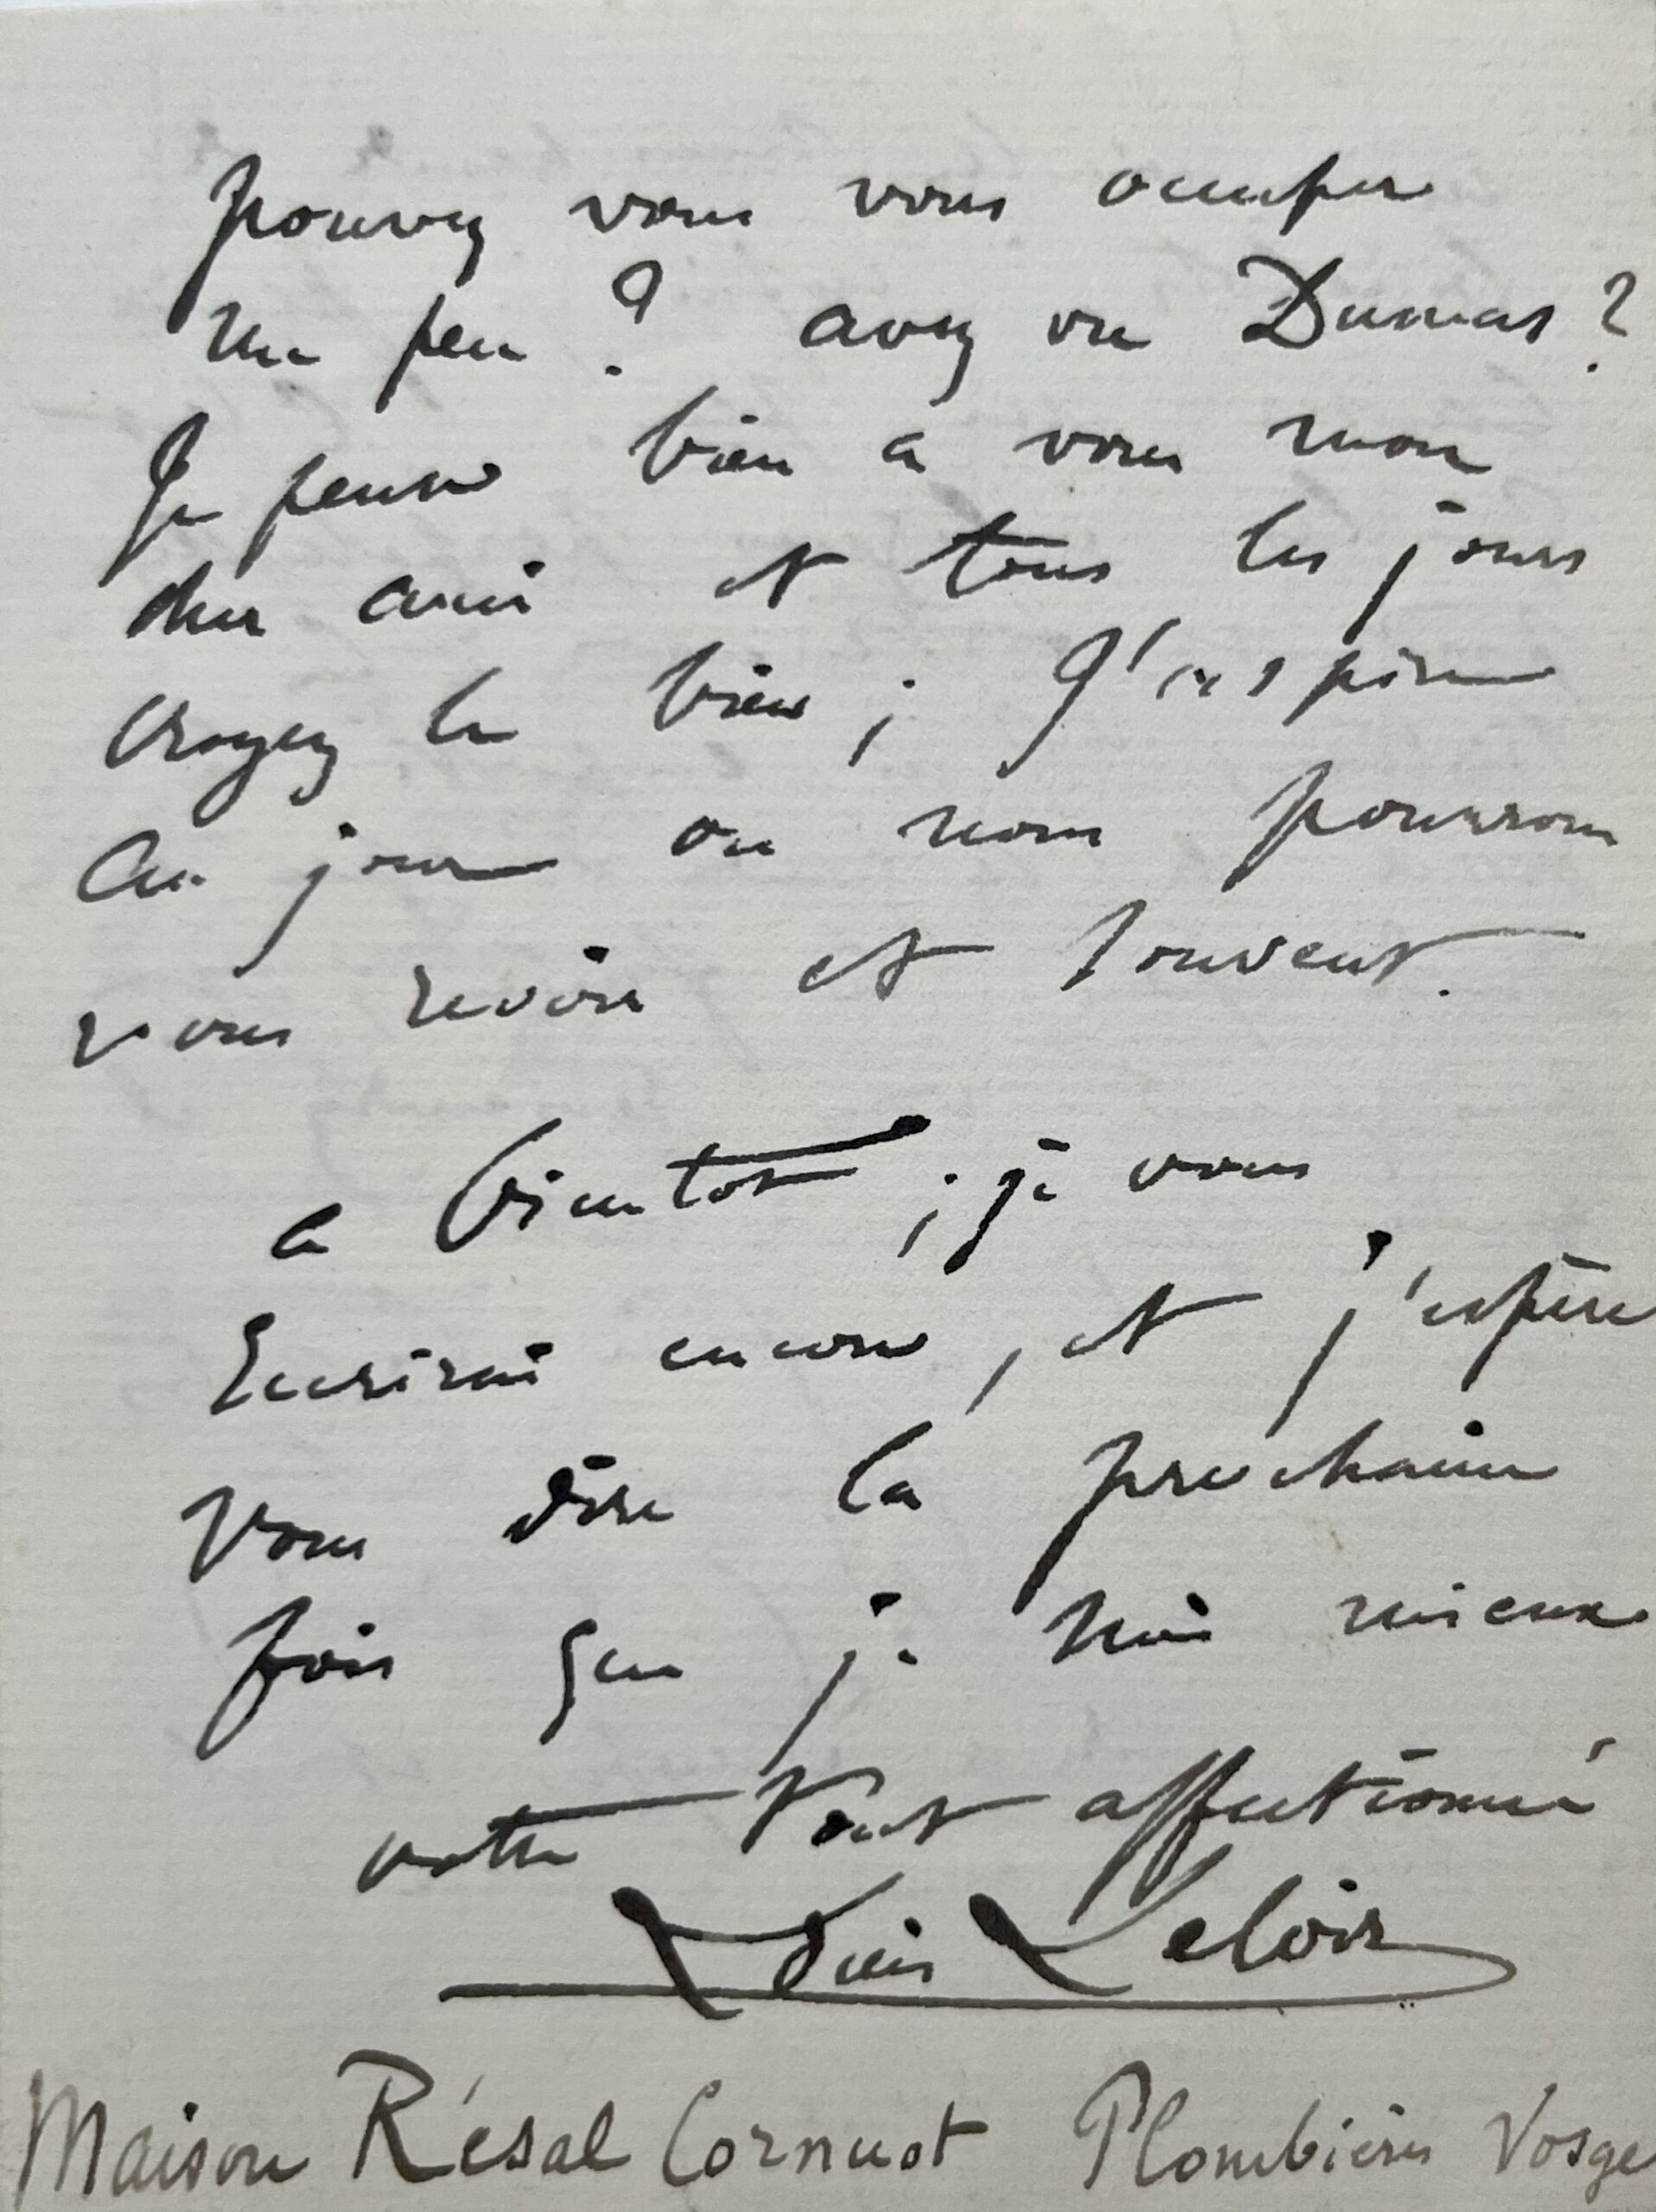 pouvez vous vous occuper
un peu ? avez vu Dumas ?
Je pense bien a vous mon
cher ami et tous les jours
croyez le bien ; J'espère
au jour ou nous pourrons
vous revoir et souvent.
a bientot ; je vous
Ecrirai encore, et j'espère
vous dire la prochaine
fois que je suis mieux
votre tout affectionné
Louis Leloir
Maison Résal Cornuot Plombières Vosge